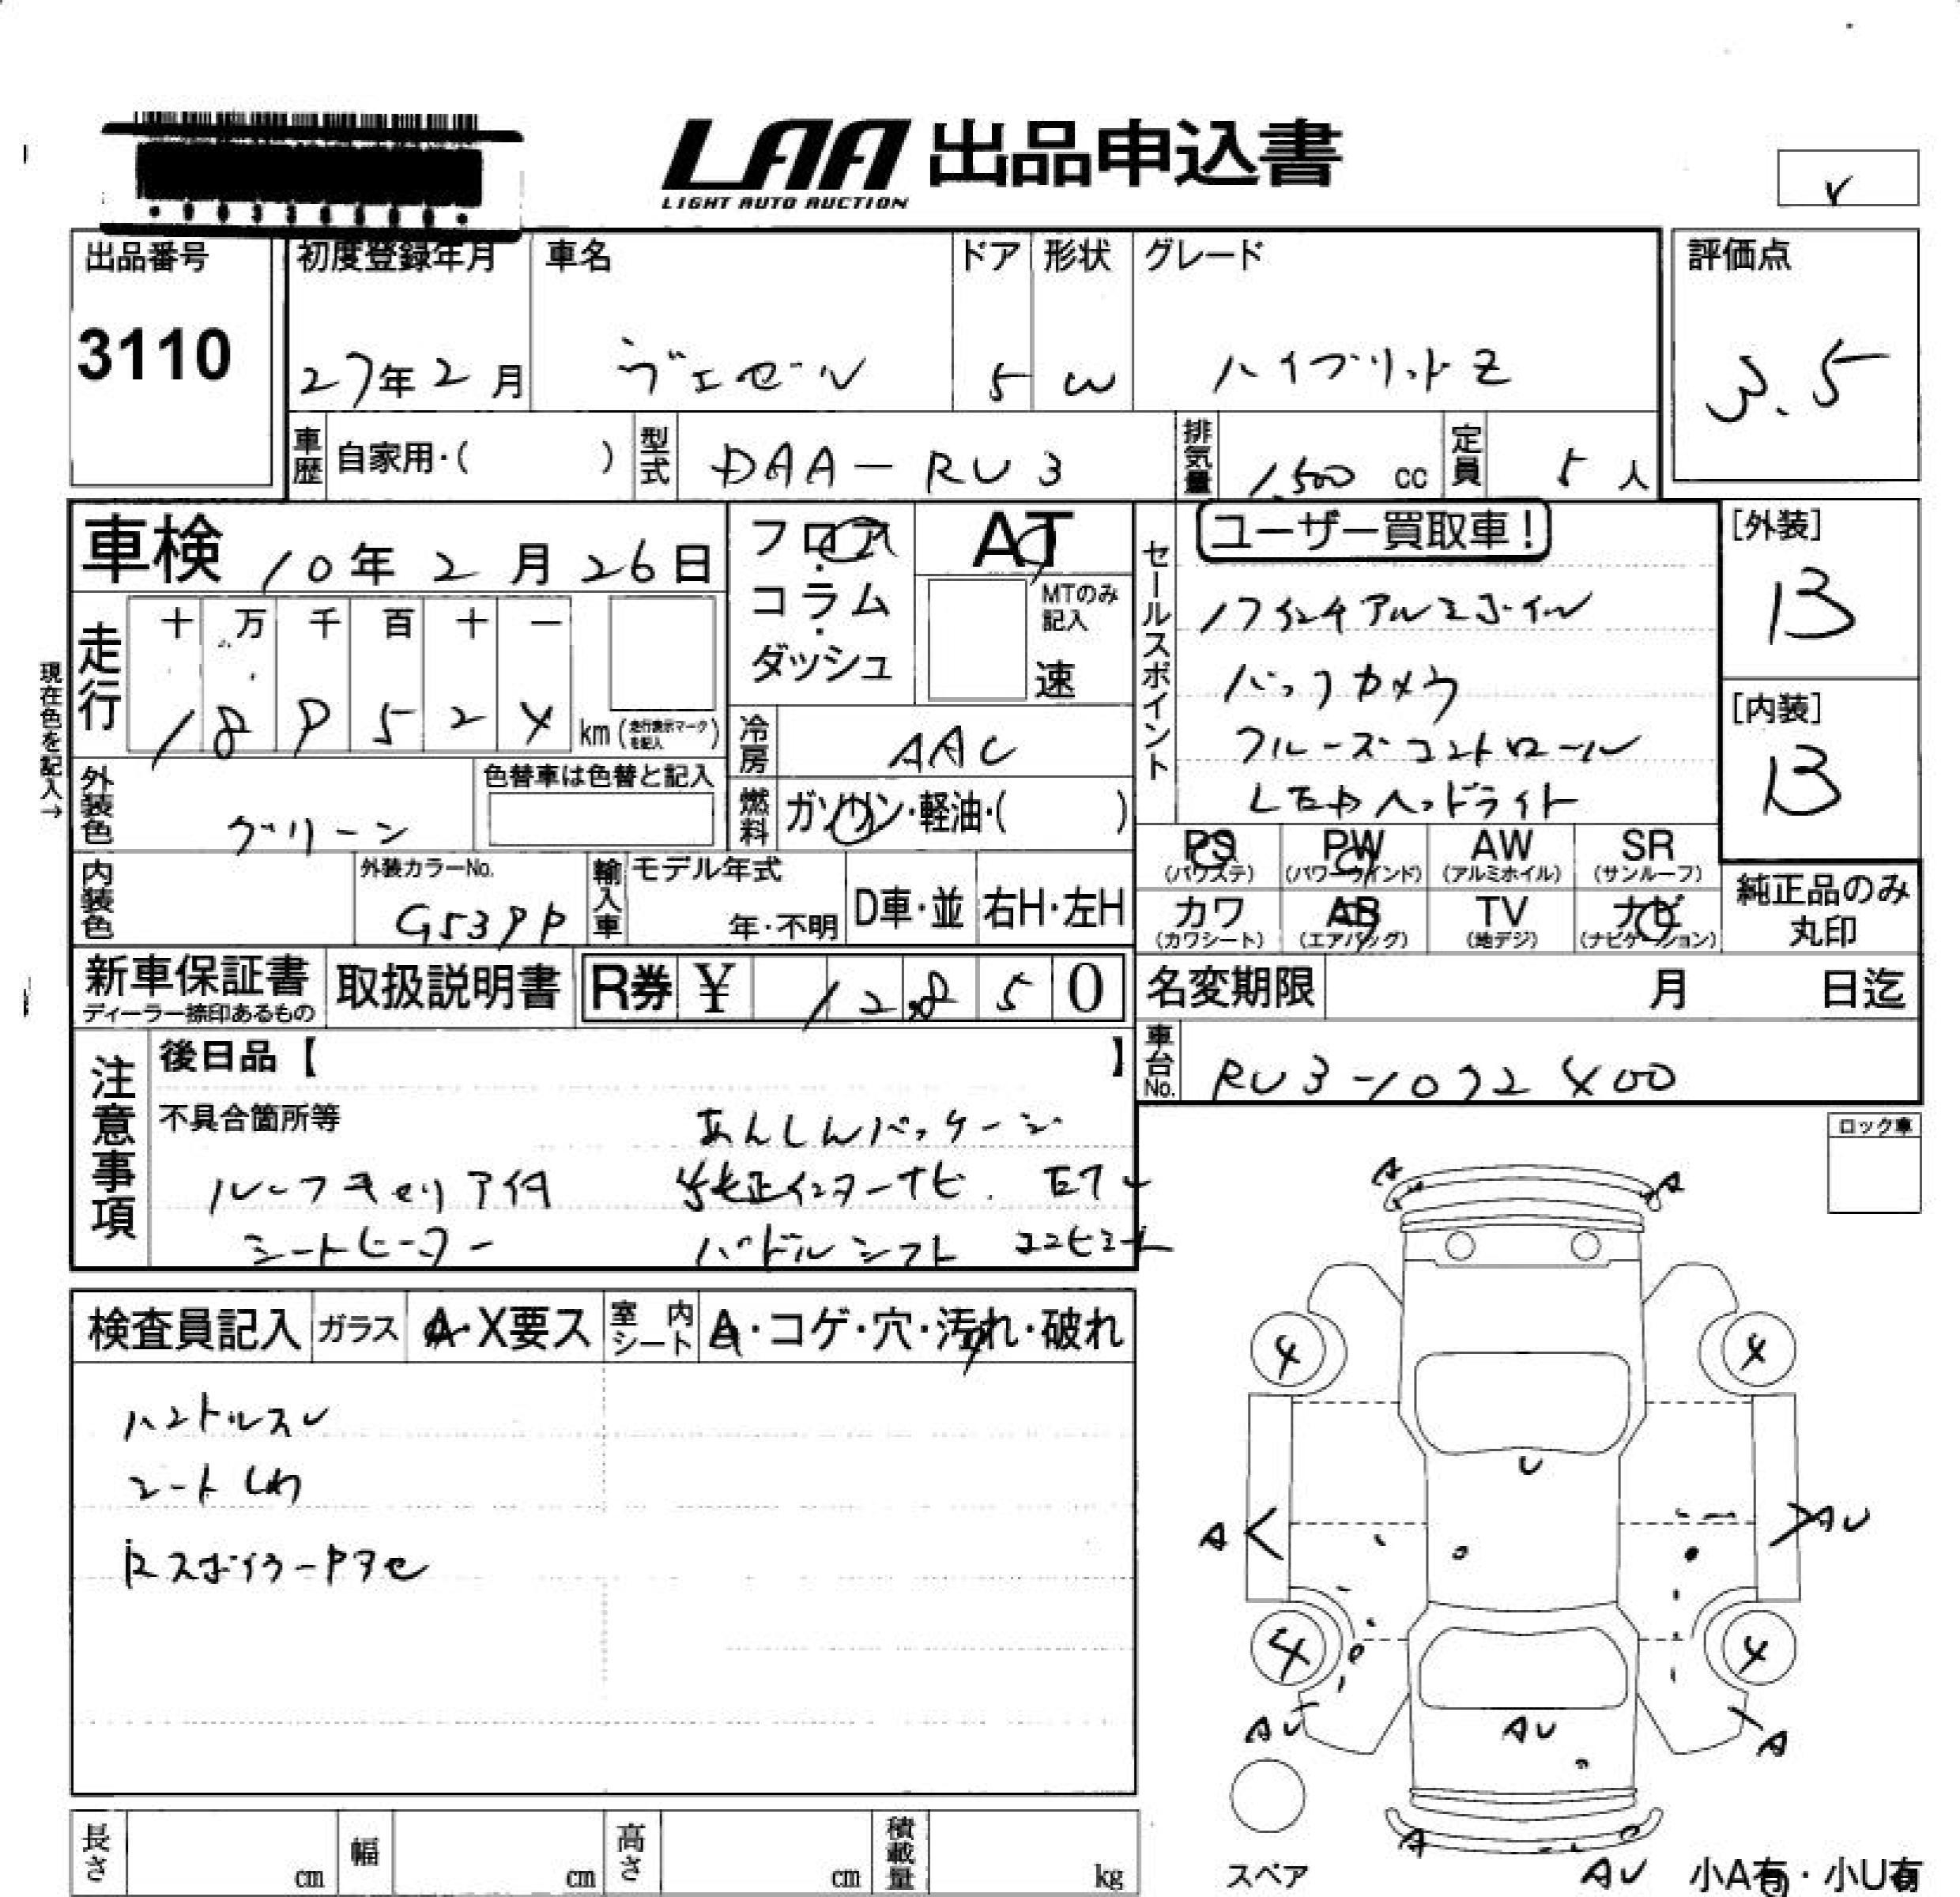 LAA 出品申込書
LIGHT AUTO AUCTION
Y
出品番号
3110
初度登録年月
27年2月
車名
ヴェゼル
ドア
5
形状
W
グレード
ハイブリッドZ
評価点
3.5
車歴 自家用・( )
型式 DAA-RU3
排気量 1,500 cc
定員 5人
車検 10年2月26日
フロア・コラム・ダッシュ
AT
MTのみ記入
速
セールスポイント
ユーザー買取車!
17インチアルミホイール
バックカメラ
クルーズコントロール
LEDヘッドライト
[外装]
B
[内装]
B
現在色を記入→
走行
十 万 千 百 十 一
1 8 9 5 2 4 km (走行表示マークを記入)
冷房 AAC
外装色 グリーン
色替車は色替と記入
燃料 ガソリン・軽油・( )
PS (パワステ)
PW (パワーウインド)
AW (アルミホイル)
SR (サンルーフ)
内装色
外装カラーNo.
G539P
輸入車
モデル年式
年・不明
D車・並
右H・左H
カワ (カワシート)
AB (エアバッグ)
TV (地デジ)
ナビ (ナビゲーション)
純正品のみ丸印
新車保証書
ディーラー捺印あるもの
取扱説明書
R券 ¥ 12850
名変期限 月 日迄
車台No. RU3-1092400
注意事項
後日品【 】
不具合箇所等
あんしんパッケージ
ルーフキャリア付
純正インターナビ.
シートヒーター
パドルシフト
ロック車
検査員記入
ガラス
A・X要ス
室内シート
A・コゲ・穴・汚れ・破れ
ハンドルスレ
シートしわ
Rスポイラー
A
A
4
4
U
A
AU
4
4
AU
AU
A
A
AU
スペア
小A有・小U有
長さ cm
幅 cm
高さ cm
積載量 kg